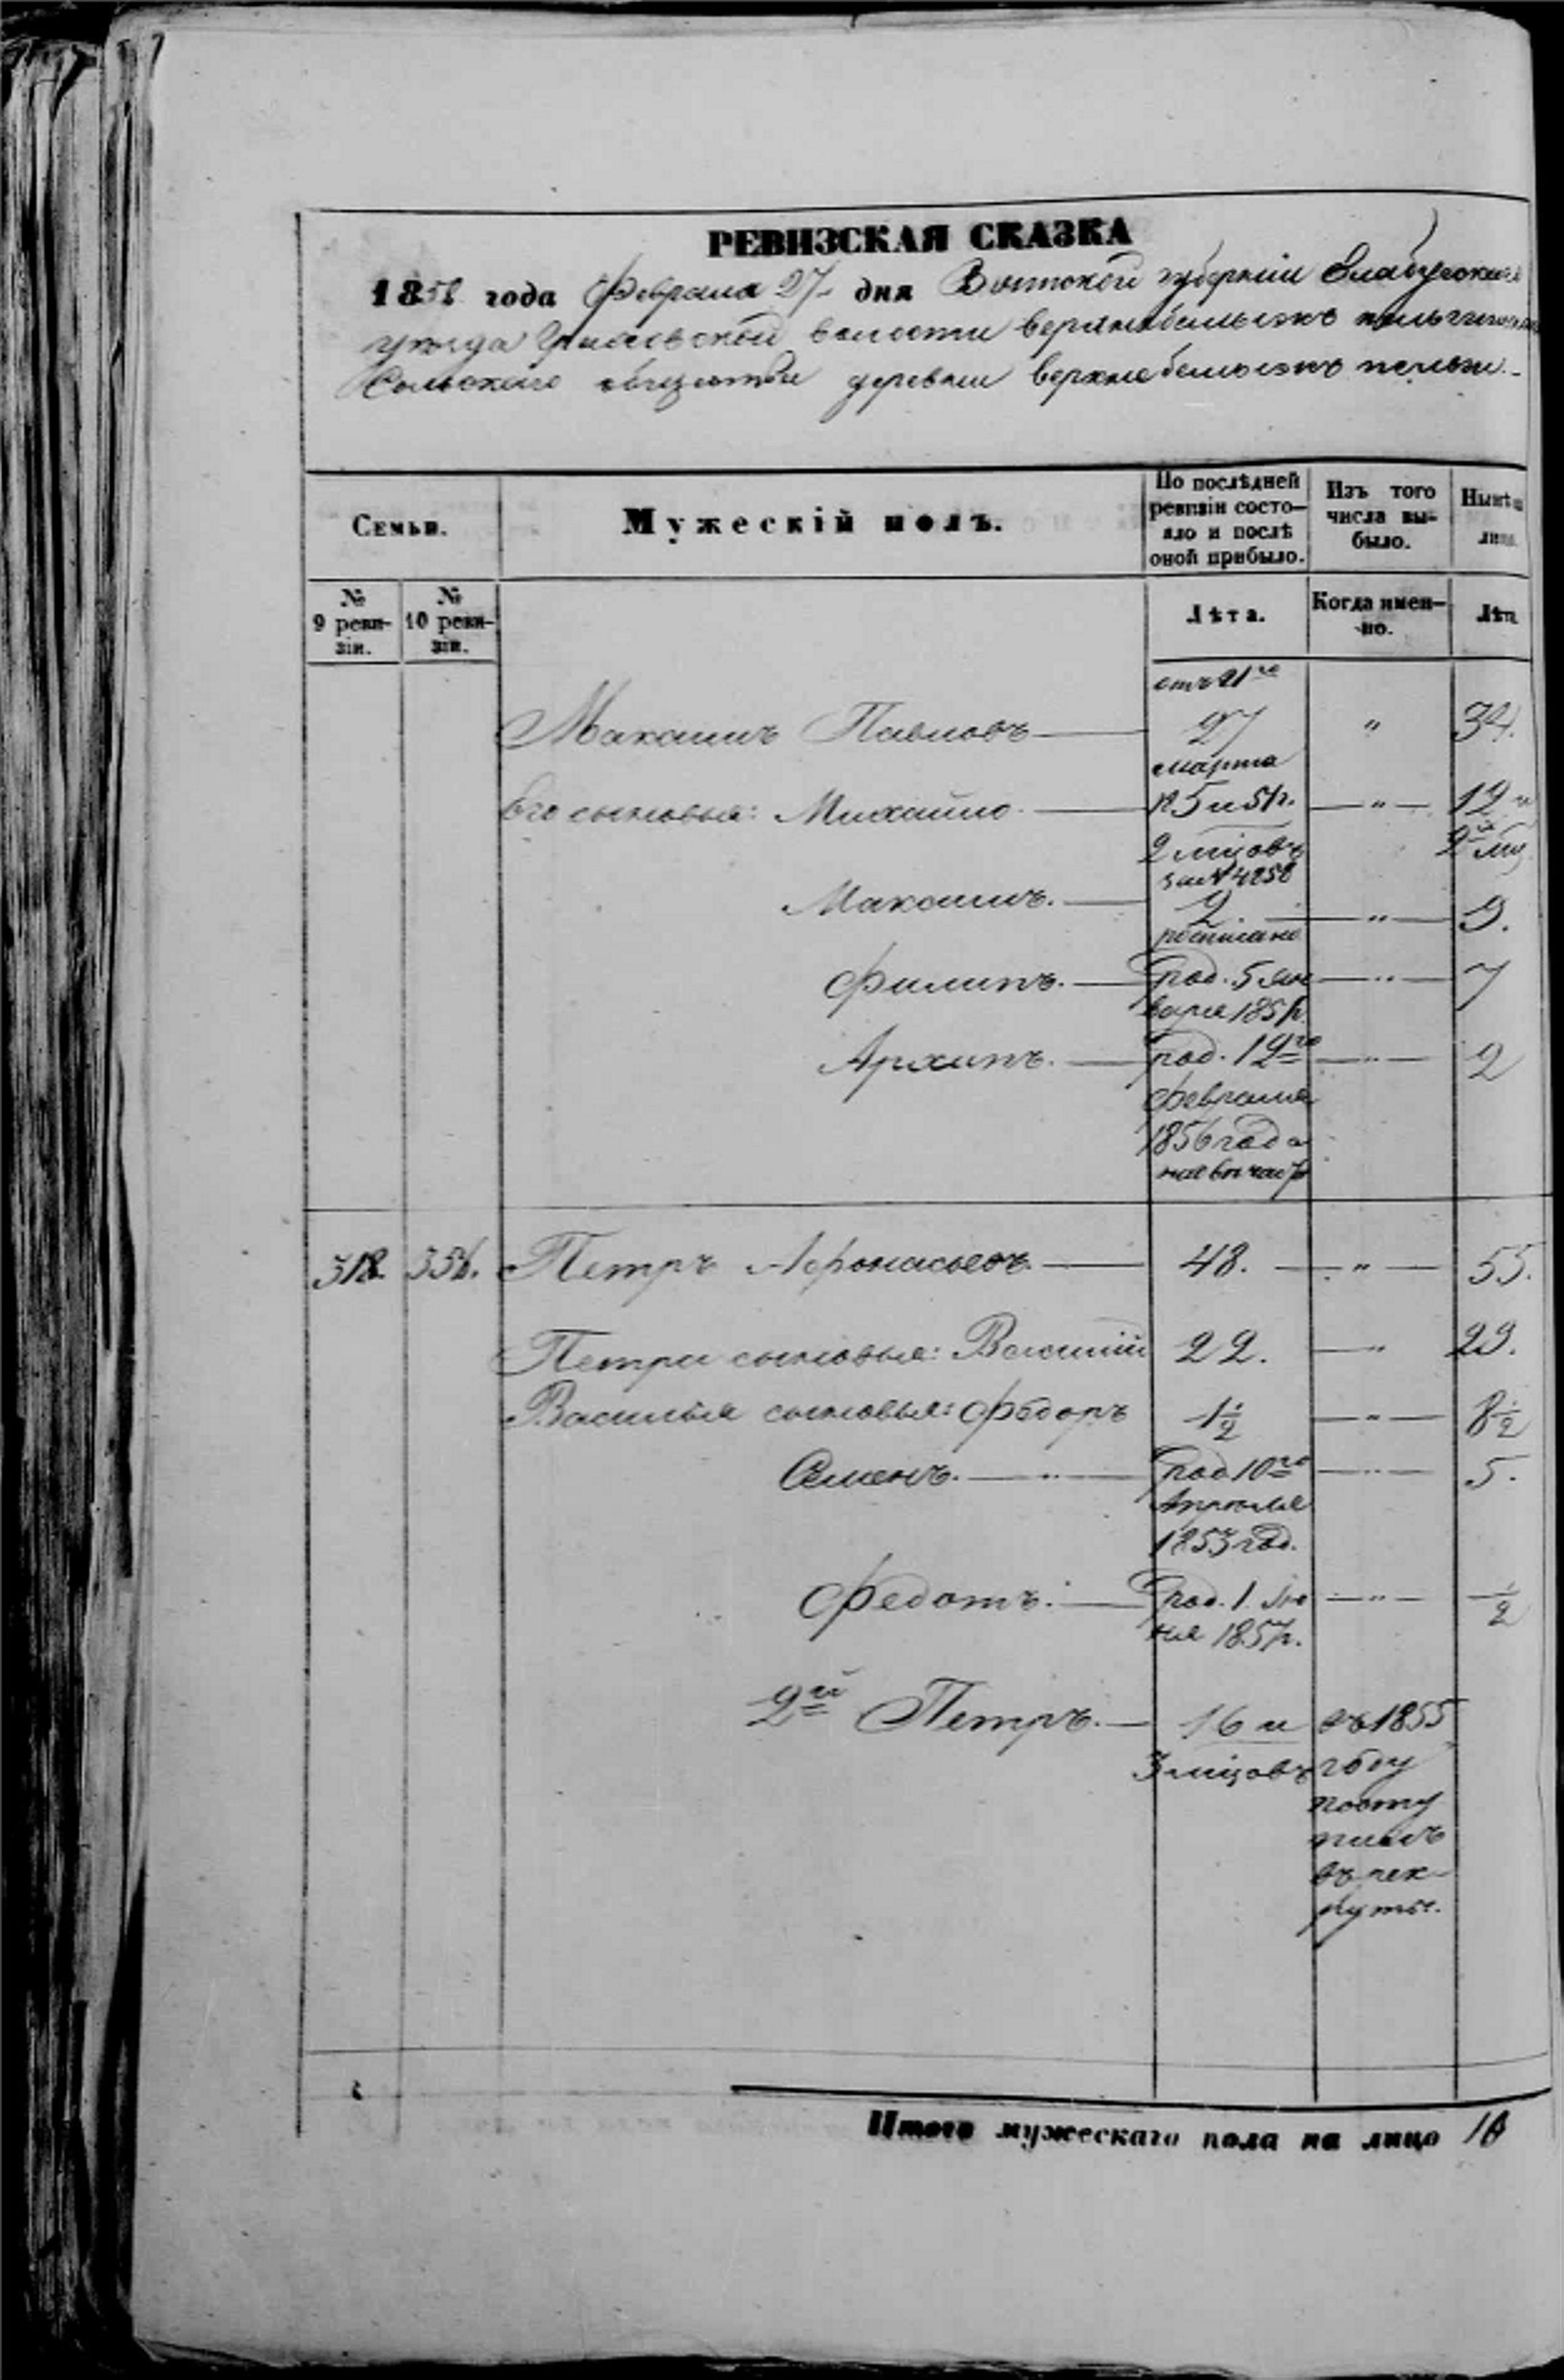 РЕВИЗСКАЯ СКАЗКА
1858 года Февраля 27 дня Вятской губернiи Елабужскаго
уѣзда волости
Сельскаго общества деревни
Семьи.
Мужескiй полъ.
По послѣдней
ревизiи состо-
яло и послѣ
оной прибыло.
Изъ того
числа вы-
было.
Нынѣ
лицо.
№
9 реви-
зiи.
№
10 реви-
зiи.
Лѣта.
Когда имен-
но.
Лѣта
отъ 21го
Максимъ Павловъ — 27 " 34.
марта
Его сыновья: Михайло — — " — 12 и
2 мѣсцовъ
за № 4258
Максимъ. — 2 — " — 9.
Филипъ. — род. 5 Ян — " — 7
варя 185
Архипъ. — род. 12го — " — 2
февраля
1856 года
318. 356. Петръ Афонасьевъ — 48. — " — 55.
Петра сыновья: Василiй 22. — " 29.
Василья сыновья: Федоръ 1½ — " — 8½
Семенъ. — " — род 10го — " — 5.
Апреля
1853 год.
Федотъ. — род. 1 Iю — " — ½
ня 1857г.
2й Петръ. — 16 и въ 1855
3 мѣсцовъ году
посту
пилъ
въ рек-
руты.
Итого мужескаго пола на лицо 10